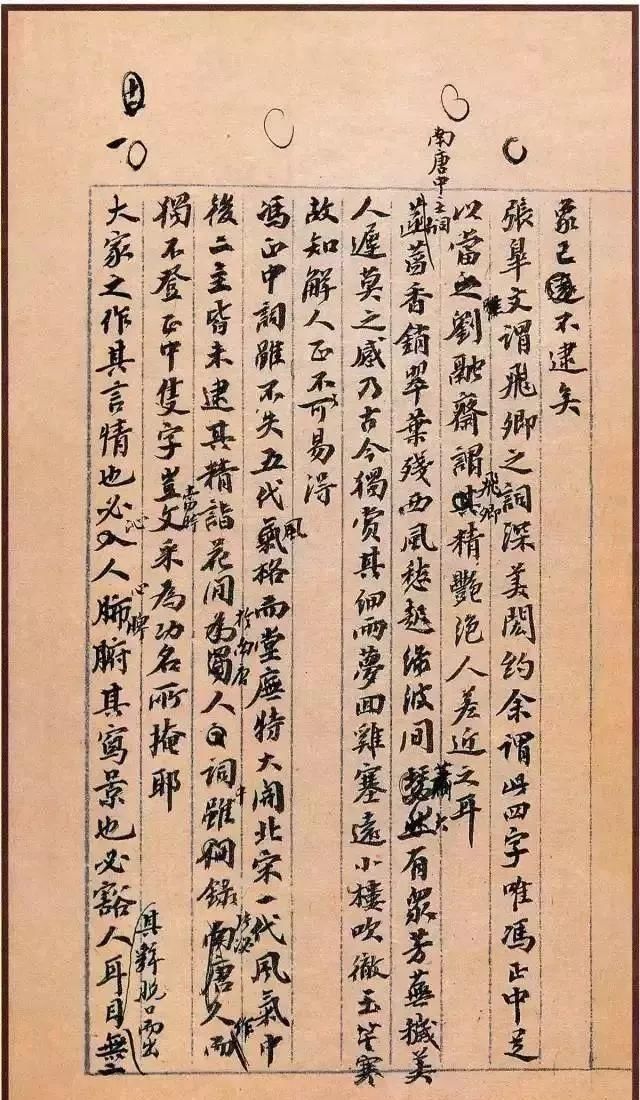 家已不逮矣
張皐文謂飛卿之詞深美閎約余謂此四字唯馮正中足
以當之劉融齋謂飛卿精艷絕人差近之耳
南唐中主詞
菡萏香銷翠葉殘西風愁起綠波間大有眾芳蕪穢美
人遲莫之感乃古今獨賞其細雨夢回雞塞遠小樓吹徹玉笙寒
故知解人正不易得
馮正中詞雖不失五代風格而堂廡特大開北宋一代風氣中
後二主皆未逮其精詣花間於南唐人詞中雖錄而
獨不登正中隻字豈當時文采為功名所掩耶
大家之作其言情也必沁人心脾其寫景也必豁人耳目
其辭脫口而出